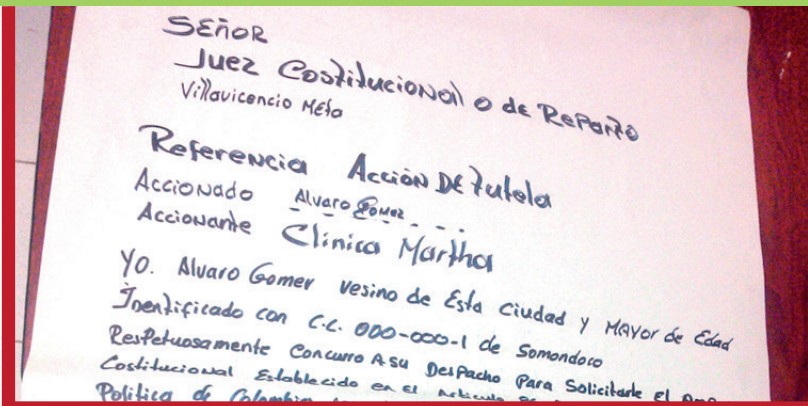 SEÑOR
Juez Costitucional o de Reparto
Villavicencio Meta
Referencia Acción DE tutela
Accionado Alvaro Gomez
Accionante Clinica Martha
YO. Alvaro Gomer vesino de Esta Ciudad y Mayor de Edad
Identificado con C.C. 000-000-1 de Somondoco
Respetuosamente Concurro A su Despacho Para Solicitarle el
Costitucional Establecido en el Articulo
Politica de Colombia